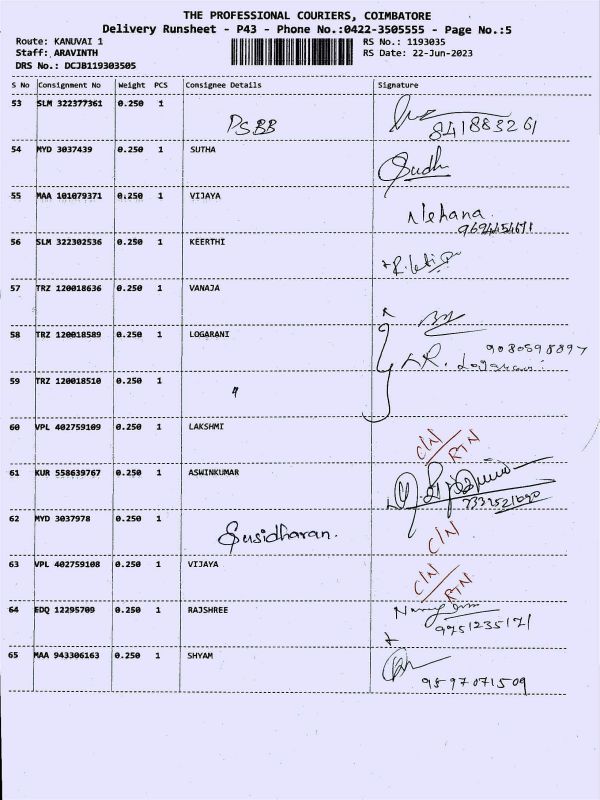 THE PROFESSIONAL COURIERS, COIMBATORE
Delivery Runsheet - P43 - Phone No.:0422-3505555 - Page No.:5
Route: KANUVAI 1 RS No.: 1193035
Staff: ARAVINTH RS Date: 22-Jun-2023
DRS No.: DCJB119303505
S No Consignment No Weight PCS Consignee Details Signature
53 SLM 322377361 0.250 1 PSBB
841883261
54 MYD 3037439 0.250 1 SUTHA Sudh
55 MAA 101079371 0.250 1 VIJAYA Nehana
9694454671
56 SLM 322302536 0.250 1 KEERTHI
57 TRZ 120018636 0.250 1 VANAJA
58 TRZ 120018589 0.250 1 LOGARANI 9080598897
KR. Logarani
59 TRZ 120018510 0.250 1 "
60 VPL 402759109 0.250 1 LAKSHMI C/N RTN
61 KUR 558639767 0.250 1 ASWINKUMAR
62 MYD 3037978 0.250 1 Susidharan. C/N
63 VPL 402759108 0.250 1 VIJAYA C/N RTN
64 EDQ 12295709 0.250 1 RAJSHREE
9751235171
65 MAA 943306163 0.250 1 SHYAM
9897071509